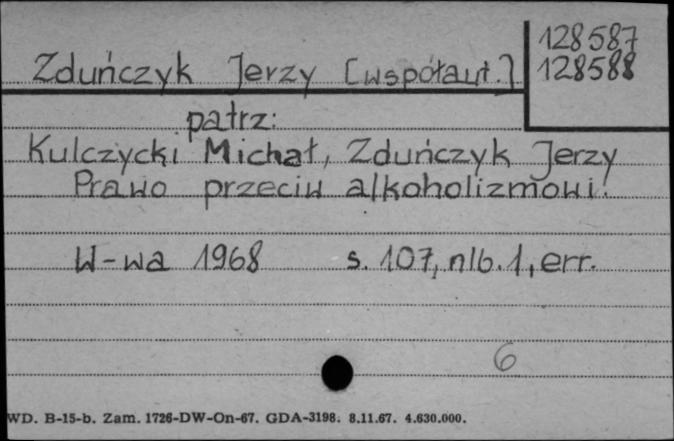 128587
Zduńczyk Jerzy [współaut.] 128588
patrz:
Kulczycki Michał, Zduńczyk Jerzy
Prawo przeciw alkoholizmowi.
W-wa 1968 s. 107, nlb. 1, err.
6
WD. B-15-b. Zam. 1726-DW-On-67. GDA-3198. 8.11.67. 4.630.000.